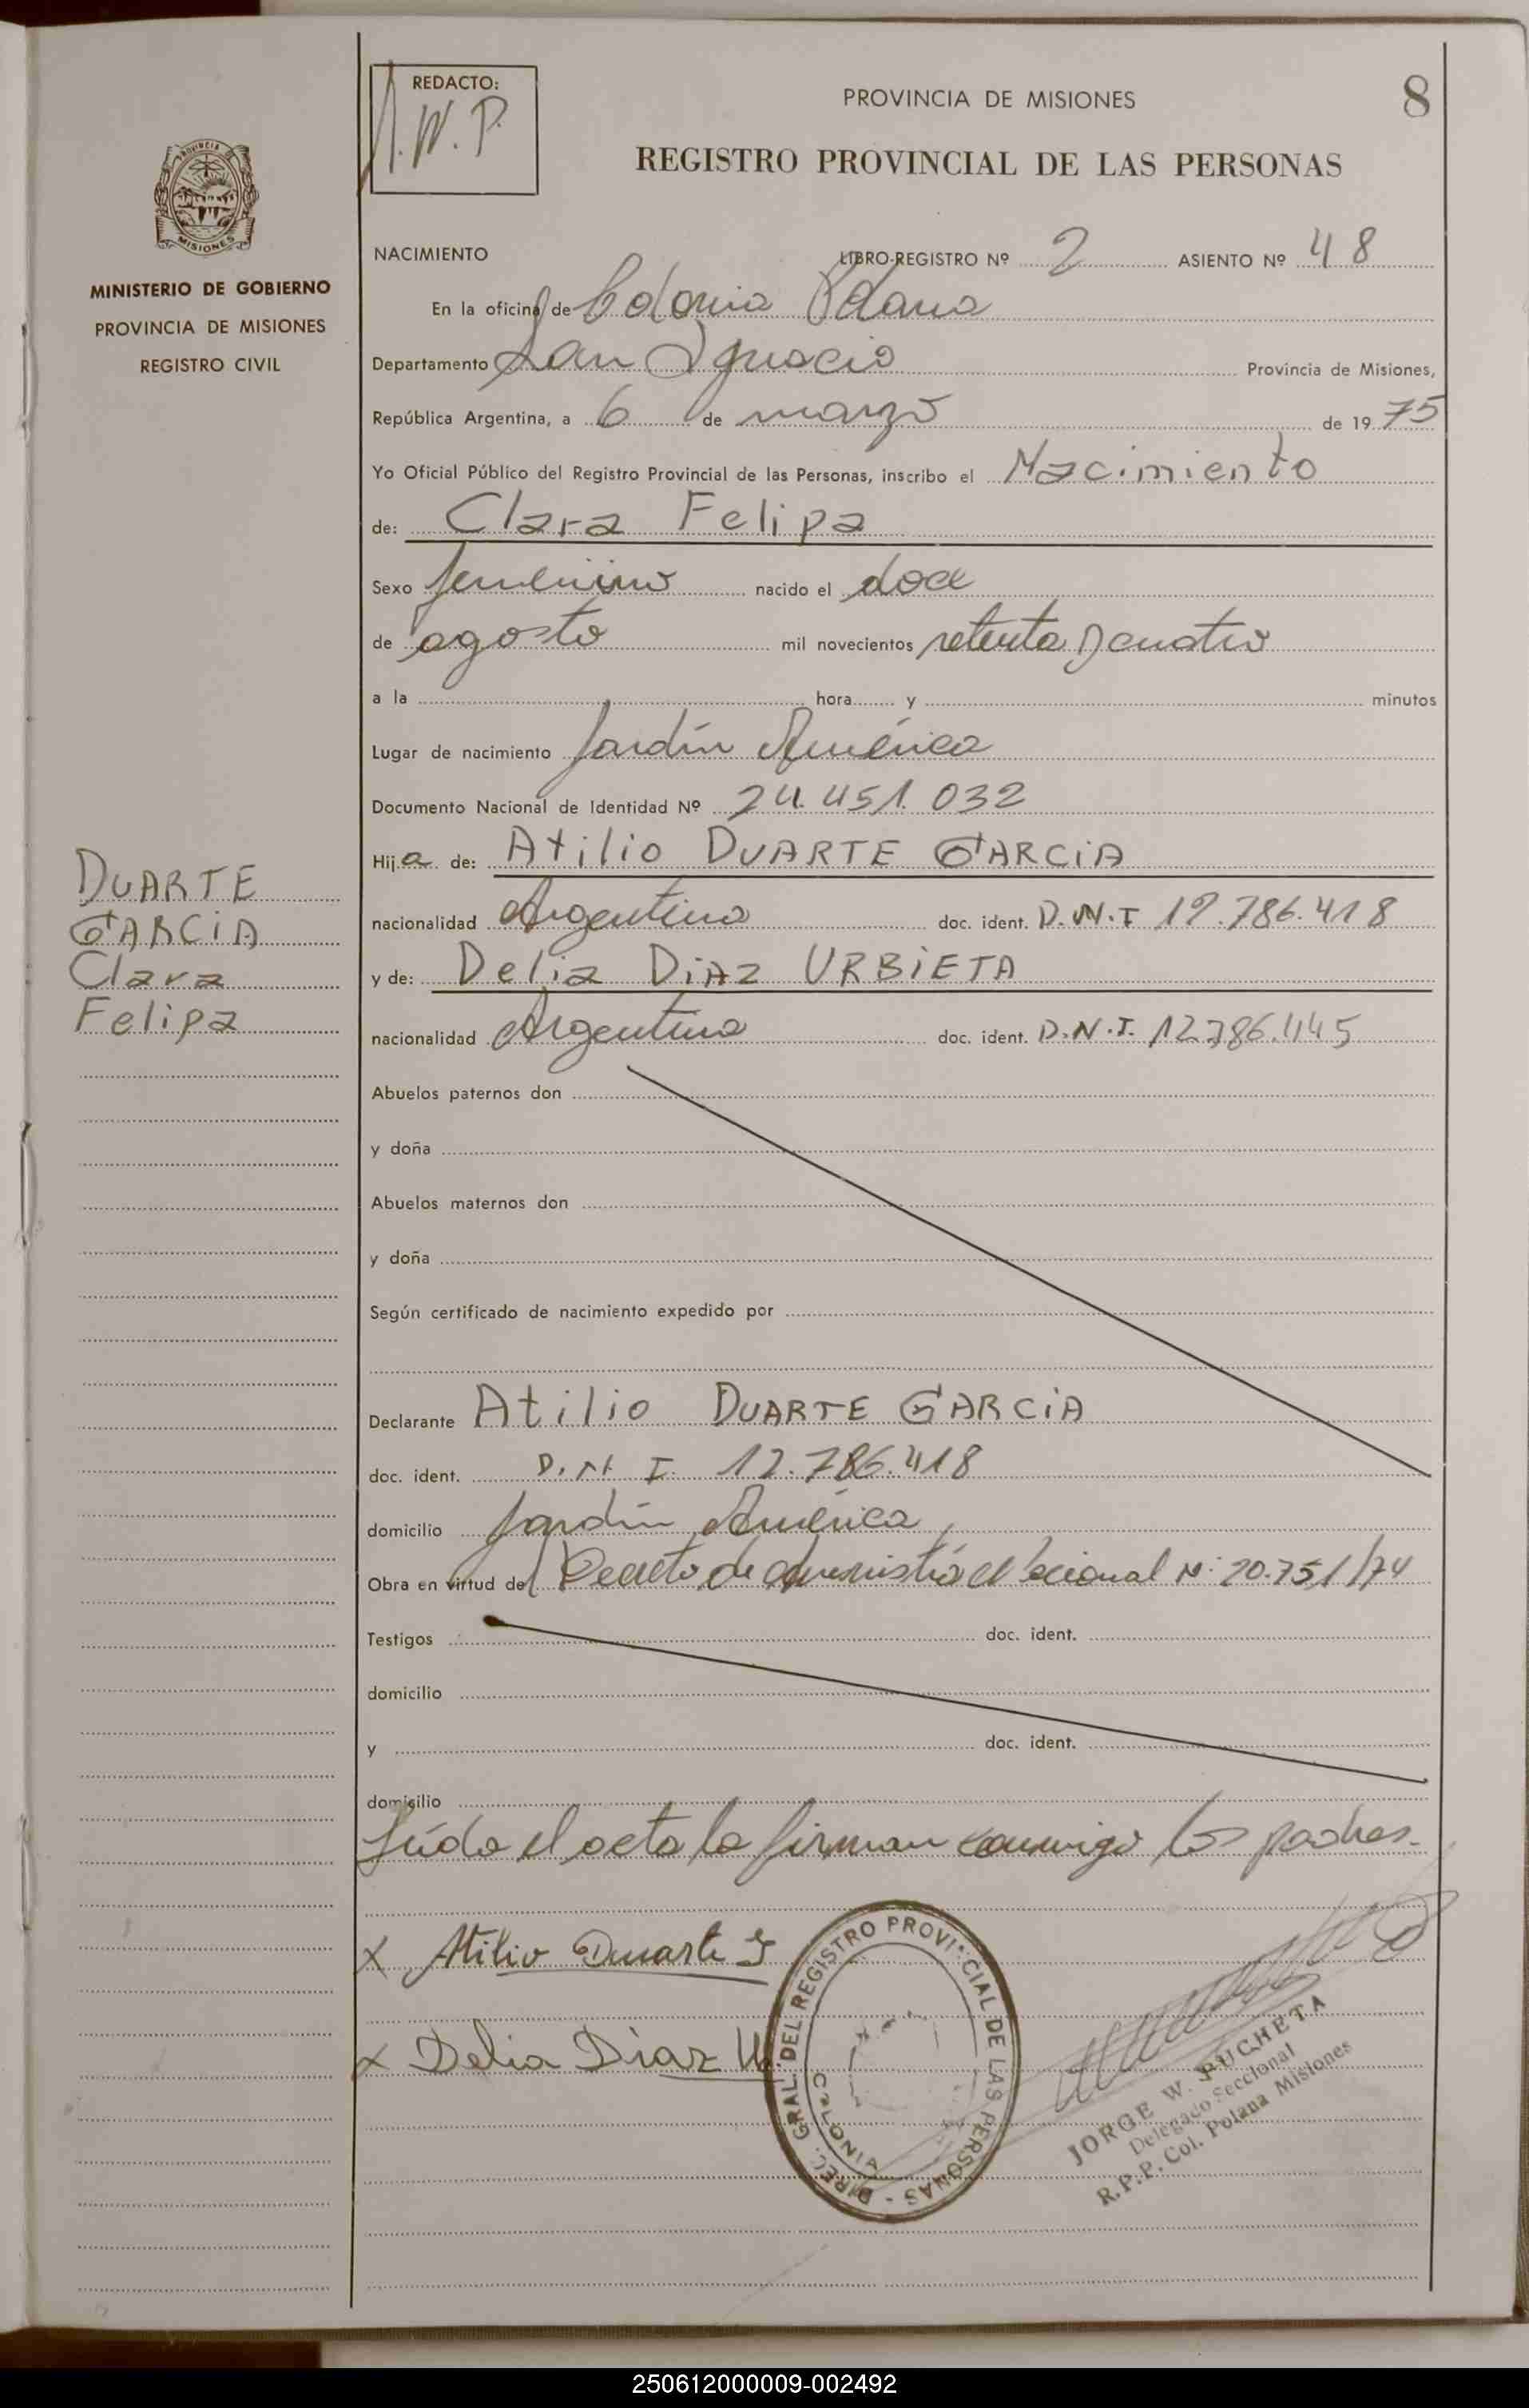 REDACTO:
J.W.P.
PROVINCIA DE MISIONES
8
REGISTRO PROVINCIAL DE LAS PERSONAS
PROVINCIA
MISIONES
MINISTERIO DE GOBIERNO
PROVINCIA DE MISIONES
REGISTRO CIVIL
NACIMIENTO LIBRO-REGISTRO Nº 2 ASIENTO Nº 48
En la oficina de Colonia Polana
Departamento San Ignacio Provincia de Misiones,
República Argentina, a 6 de marzo de 1975
Yo Oficial Público del Registro Provincial de las Personas, inscribo el Nacimiento
de: Clara Felipa
Sexo femenino nacido el doce
de agosto mil novecientos setenta y cuatro
a la hora y minutos
Lugar de nacimiento Jardín América
Documento Nacional de Identidad Nº 24.451.032
Hija de: Atilio DUARTE GARCIA
nacionalidad Argentina doc. ident. D.N.I 12.786.418
y de: Delia DIAZ URBIETA
nacionalidad Argentina doc. ident. D.N.I. 12.786.445
DUARTE
GARCIA
Clara
Felipa
Abuelos paternos don
y doña
Abuelos maternos don
y doña
Según certificado de nacimiento expedido por
Declarante Atilio DUARTE GARCIA
doc. ident. D.N.I. 12.786.418
domicilio Jardín América
Obra en virtud del Decreto de Nº: 20.751/74
Testigos doc. ident.
domicilio
y doc. ident.
domicilio
Leída el acta la firman conmigo los padres.
X Atilio Duarte G
X Delia Diaz U
DIREC. GRAL. DEL REGISTRO PROVINCIAL DE LAS PERSONAS -
JORGE W. BUCHETA
Delegado Seccional
R.P.P. Col. Polana Misiones
250612000009-002492